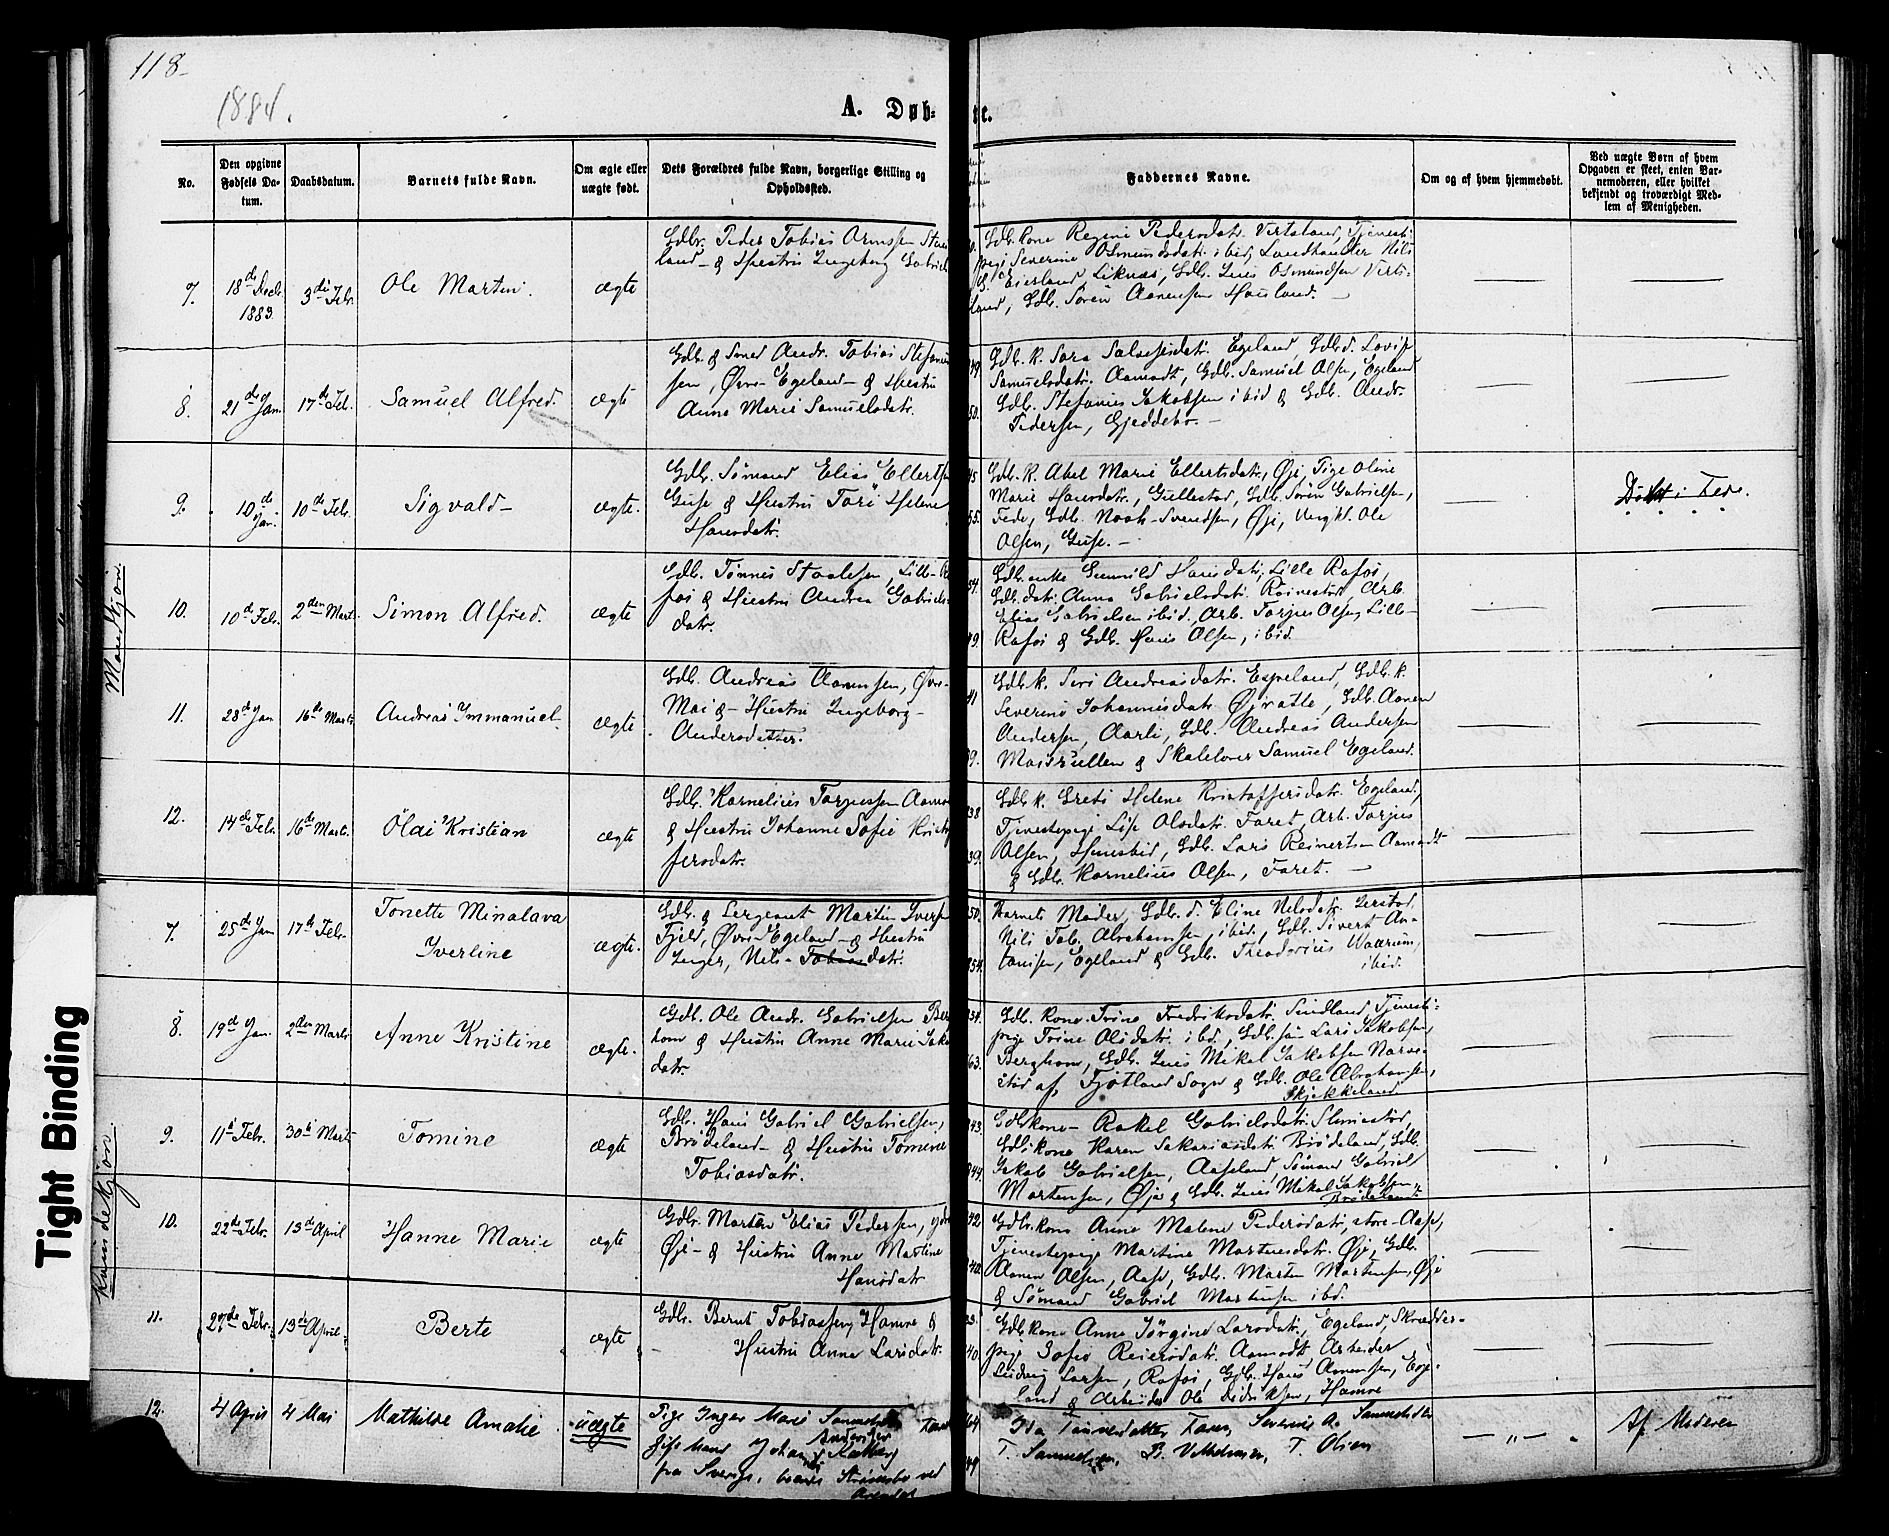 118
1884.
A. Døb-
te.
No.
Den opgivne Fødsels Datum.
Daabsdatum.
Barnets fulde Navn.
Om ægte eller uægte født.
Dets Forældres fulde Navn, borgerlige Stilling og Opholdssted.
Faddernes Navne.
Om og af hvem hjemmedøbt.
Ved uægte Børn af hvem Opgaven er skeet, enten Barnemoderen, eller hvilket bekjendt og troværdigt Medlem af Menigheden.
Mandkjøn.
7. 18de Decb. 1883 3die Febr. Ole Martin. ægte
Gdbr. Peder Tobias Ormssen
land & Hustru Ingeborg Gabriels
Gdbr. kone Regine Pedersdatr. Virtsland, Tjeneste-
pige Severine Osmundsdatr. ibid, Landhandler Nils
Eierland Liknæs, Gdbr. Osmundsen Virts-
land, Gdbr. Søren Aanensen Hausland.
8. 21de Jan. 17de Feb. Samuel Alfred. ægte
Gdbr. & Smed Andr. Tobias Stefanus-
sen, Øvre Egeland & Hustru
Anne Marie Samuelsdatr.
Gdbr. k. Sara Salvesdatr. Egeland, Gdbr. d. Lovise
Samuelsdatr. Aamodt, Gdbr. Samuel Olsen, Egeland
Gdbr. Stefanus Jakobsen ibid & Gdbr. Andr.
Pedersen, Gjeddebo.
9. 10de Jan. 10de Febr. Sigvald ægte.
Gdbr. Sømand Elias Ellertsen
Guse & Hustru Tore Helene
Hansdatr.
Gdbr. k. Abel Marie Ellertsdatr., Øje, Pige Oline
Marie Hansdatr., Gullestad, Gdbr. Søren Gabrielsen,
Fede, Gdbr. Noah Svendsen, Øje, Ungk. Ole
Olsen, Guse.
Døbt i Fede.
10. 10de Febr. 2den Marts Simon Alfred. ægte
Gdbr. Tønnes Staalesen, Lille Ra-
fos & Hustru Andrea Gabriels-
datr.
Gdbr. enke Gunvild Hansdatr., Lille Rafos,
Gdbr. datr. Anna Gabrielsdatr. Røinestad, Arb.
Elias Gabrielsen ibid., Arb. Torjus Olsen, Lille
Rafos & Gdbr. Hans Olsen, ibid.
11. 28de Jan 16de Marts Andreas Immanuel ægte
Gdbr. Andreas Aanensen, Øvre
Moi & Hustru Ingeborg
Andersdatter.
Gdbr. k. Siri Andreasdatr. Espeland, Gdbr. k.
Severine Johannesdatr. Gdbr. Aanen
Andersen, Aarli, Gdbr. Andreas Andersen
& Skolelærer Samuel Egeland.
12. 14de Febr. 16de Marts. Olai Kristian ægte
Gdbr. Kornelius Torjussen Aamo
& Hustru Johanne Sofie Kristof
fersdatr.
Gdbr. k. Grete Helene Kristoffersdatr. Egeland,
Tjenestepige Lise Olsdatr. Faret, Arb. Torjus
Olsen, Gdbr. Lars Reinertsen Aamodt
& Gdbr. Kornelius Olsen, Faret.
Kvindekjøn.
7. 25de Jan 17de Febr. Tonette Minalava
Iverline ægte.
Gdbr. & Sergeant Martin Iversen
Fjeld, Øvre Egeland & Hustru
Inger, Nels- Tobiasdatr.
Barnets Moder, Gdbr. d. Eline Nelsdatr.
Nils Tob. Abrahamsen, ibid., Gdbr. Sivert An-
tonisen, Egeland & Gdbr. Theodorius Waarum,
ibid.
8. 19de Jan. 2den Marts Anne Kristine ægte.
Gdbr. Ole Andr. Gabrielsen Berg-
hom & Hustru Anne Marie Jako
datr.
Gdbr. kone Trine Fredriksdatr. Sindland, Tjeneste-
pige Trine Olsdatr. ibd., Gdbr. søn Lars Jakobsen,
Berghom, Gdbr. Mikal Jakobsen
stad af Fjotland Sogn & Gdbr. Ole Abrahamsen,
Skjekkeland
9. 11te Febr. 30te Marts Tomine ægte
Gdbr. Hans Gabriel Gabrielsen,
Brødeland & Hustru Tomine
Tobiasdatr.
Gdbr. kone Rakel Gabrielsdatr.
Gdbr. kone Karen Sakariasdatr. Brødeland, Gdbr.
Jakob Gabrielsen, Aaseland, Sømand Gabriel
Martensen, Øje & Gdbr. Mikal Jakobsen,
Brødeland
10. 22de Febr. 13de April Hanne Marie ægte
Gdbr. Morten Elias Pedersen, ydre
Øje & Hustru Anne Martine
Hansdatr
Gdbr. kone Anne Malene Pedersdatr, store Aase,
Tjenestepige Martine Martinsdatr. Øje, Gdbr.
Aanen Olsen, Aase, Gdbr. Morten Martensen, Øje
& Sømand Gabriel Martensen ibd.
11. 27de Febr. 13de April. Berte ægte
Gdbr. Bernt Tobiassen, Hamre &
Hustru Anne Larsdatr.
Gdbr. kone Anne Jørgine Larsdatr., Egeland, Skrædder-
pige Sofie Reiersdatr. Aamodt, Arbeider
Ludvig Larsen, Rafos, Gdbr. Hans Aanensen, Ege-
land & Arbeider Ole Didriksen, Hamre
12. 4 April 4 Mai Mathilde Amalie uægte
Pige Inger Marie
Gift Mand Johan
Andersen
fra Sverige, boende Strømsbo ved
Arendal
Ida Severine A. Samuelsdtr
T. Samuelsen, B. Vilhelmsen, T. Olsen
— " —
Af Moderen
Tight Binding